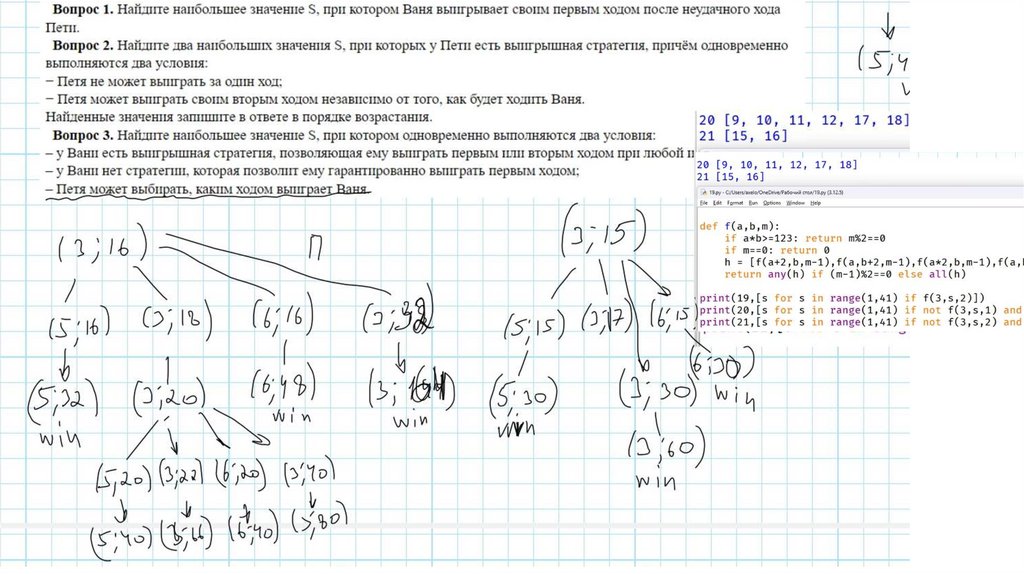 Вопрос 1. Найдите наибольшее значение S, при котором Ваня выигрывает своим первым ходом после неудачного хода
Пети.
Вопрос 2. Найдите два наибольших значения S, при которых у Пети есть выигрышная стратегия, причём одновременно
выполняются два условия:
– Петя не может выиграть за один ход;
– Петя может выиграть своим вторым ходом независимо от того, как будет ходить Ваня.
Найденные значения запишите в ответе в порядке возрастания.
Вопрос 3. Найдите наибольшее значение S, при котором одновременно выполняются два условия:
– у Вани есть выигрышная стратегия, позволяющая ему выиграть первым или вторым ходом при любой и
– у Вани нет стратегии, которая позволит ему гарантированно выиграть первым ходом;
– Петя может выбирать, каким ходом выиграет Ваня.
(5;4
20 [9, 10, 11, 12, 17, 18]
21 [15, 16]
20 [9, 10, 11, 12, 17, 18]
21 [15, 16]
19.py - C:/Users/axelo/OneDrive/Рабочий стол/19.py (3.12.5)
File Edit Format Run Options Window Help
def f(a,b,m):
if a*b>=123: return m%2==0
if m==0: return 0
h = [f(a+2,b,m-1),f(a,b+2,m-1),f(a*2,b,m-1),f(a,b
return any(h) if (m-1)%2==0 else all(h)
print(19,[s for s in range(1,41) if f(3,s,2)])
print(20,[s for s in range(1,41) if not f(3,s,1) and
print(21,[s for s in range(1,41) if not f(3,s,2) and
(3;16) П (3;15)
(5;16) (3;18) (6;16) (5;15) (3;17) (6;15
(5;32) (3;20) (6;48) (5;30) (3;30) (6;30)
win win win win win
(5;20) (3;22) (6;20) (3;40) (3;60)
win
(5;40) (3;66) (6;40) (3;80)